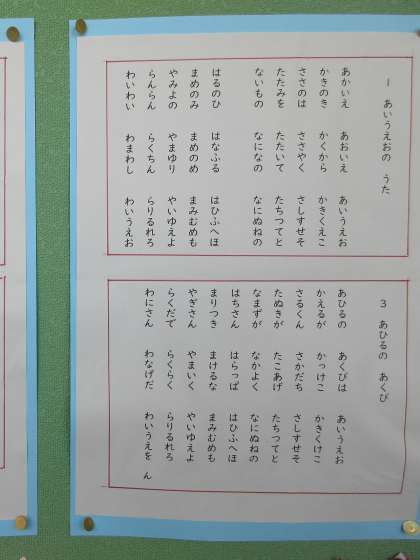 一 あいうえおの うた
あかいえ あおいえ あいうえお
かきのき かくから かきくえこ
ささのは ささやく さしすせそ
たたみを たたいて たちつてと
ないもの なになの なにぬねの
はるのひ はなふる はひふへほ
まめのみ まめのめ まみむめも
やみよの やまゆり やいゆえよ
らんらん らくちん らりるれろ
わいわい わまわし わいうえお
３ あひるの あくび
あひるの あくびは あいうえお
かえるが かっけこ かきくけこ
さるくん さかだち さしすせそ
たぬきが たこあげ たちつてと
なまずが なかよく なにぬねの
はちさん はらっぱ はひふへほ
まりつき まけるな まみむめも
やぎさん やまいく やいゆえよ
らくだで らくらく らりるれろ
わにさん わなげだ わいうえを ん